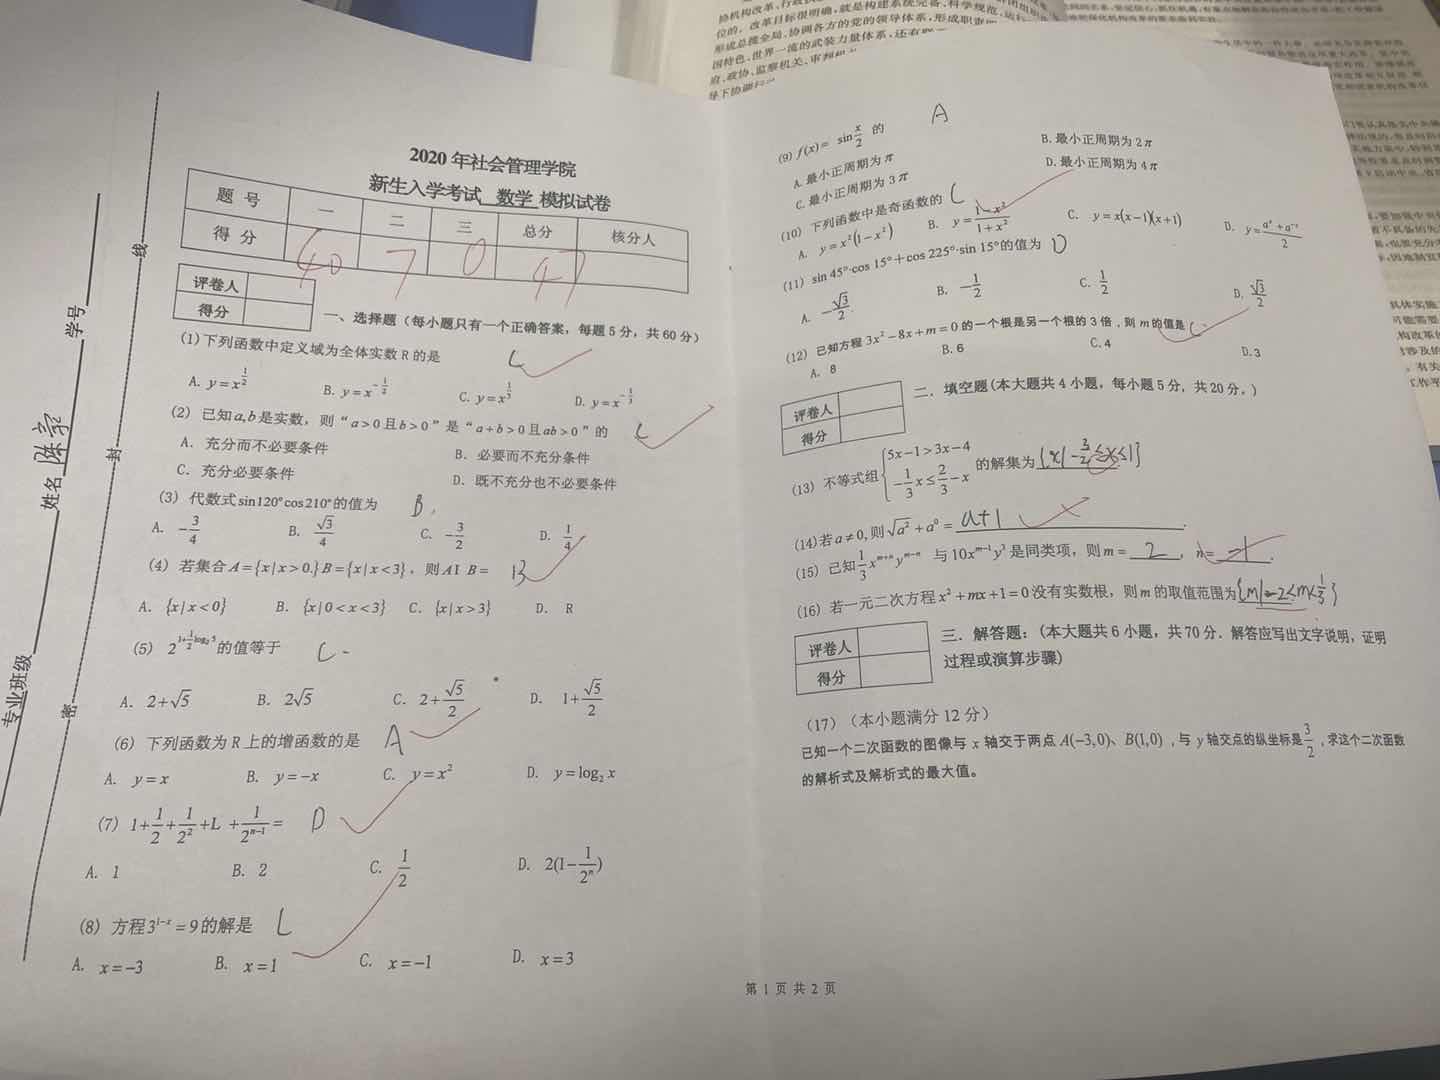 2020 年社会管理学院
新生入学考试 数学 模拟试卷
题 号 一 二 三 总分 核分人
得 分 40 7 0 47
评卷人
得分
学号
姓名
专业班级
线
封
密
一、选择题（每小题只有一个正确答案，每题 5 分，共 60 分）
(1)下列函数中定义域为全体实数 R 的是 C
A. y=x^{1/2} B. y=x^{-1/2} C. y=x^{1/3} D. y=x^{-1/3}
(2) 已知a,b是实数，则“a>0且b>0”是“a+b>0且ab>0”的 C
A. 充分而不必要条件 B. 必要而不充分条件
C. 充分必要条件 D. 既不充分也不必要条件
(3) 代数式sin120°cos210°的值为 B
A. -3/4 B. √3/4 C. -3/2 D. 1/4
(4) 若集合A={x|x>0.}B={x|x<3}，则AI B= B
A. {x|x<0} B. {x|0<x<3} C. {x|x>3} D. R
(5) 2^{1+1/2 log₂5}的值等于 C
A. 2+√5 B. 2√5 C. 2+√5/2 D. 1+√5/2
(6) 下列函数为 R 上的增函数的是 A
A. y=x B. y=-x C. y=x² D. y=log₂x
(7) 1+1/2+1/2²+L +1/2^{n-1}= D
A. 1 B. 2 C. 1/2 D. 2(1-1/2ⁿ)
(8) 方程3^{1-x}=9的解是 C
A. x=-3 B. x=1 C. x=-1 D. x=3
(9) f(x)= sin x/2 的 A
A.最小正周期为π B.最小正周期为2π
C.最小正周期为3π D.最小正周期为4π
(10) 下列函数中是奇函数的 C
A. y=x²(1-x²) B. y=(1-x²)/(1+x²) C. y=x(x-1)(x+1) D. y=(aˣ+a⁻ˣ)/2
(11) sin 45°·cos 15°+cos 225°·sin 15°的值为 D
A. -√3/2 B. -1/2 C. 1/2 D. √3/2
(12) 已知方程 3x²-8x+m=0的一个根是另一个根的 3 倍，则m的值是 C
A. 8 B. 6 C. 4 D. 3
评卷人
得分
二．填空题(本大题共 4 小题，每小题 5 分，共 20 分。)
(13) 不等式组{5x-1>3x-4
-1/3x≤2/3-x 的解集为{x|-3/2≤x≤1}
(14)若a≠0,则√a²+a⁰= a+1
(15) 已知1/3 x^{m+n}y^{m-n} 与10x^{m-1}y³是同类项，则m= 2 ，n= -1 .
(16) 若一元二次方程x²+mx+1=0没有实数根，则m的取值范围为{m|-2≤m<1/3}
评卷人
得分
三．解答题：(本大题共 6 小题，共 70 分．解答应写出文字说明，证明
过程或演算步骤)
(17)（本小题满分 12 分）
已知一个二次函数的图像与 x 轴交于两点 A(-3,0)、B(1,0) ，与 y 轴交点的纵坐标是3/2，求这个二次函数
的解析式及解析式的最大值。
第 1 页 共 2 页